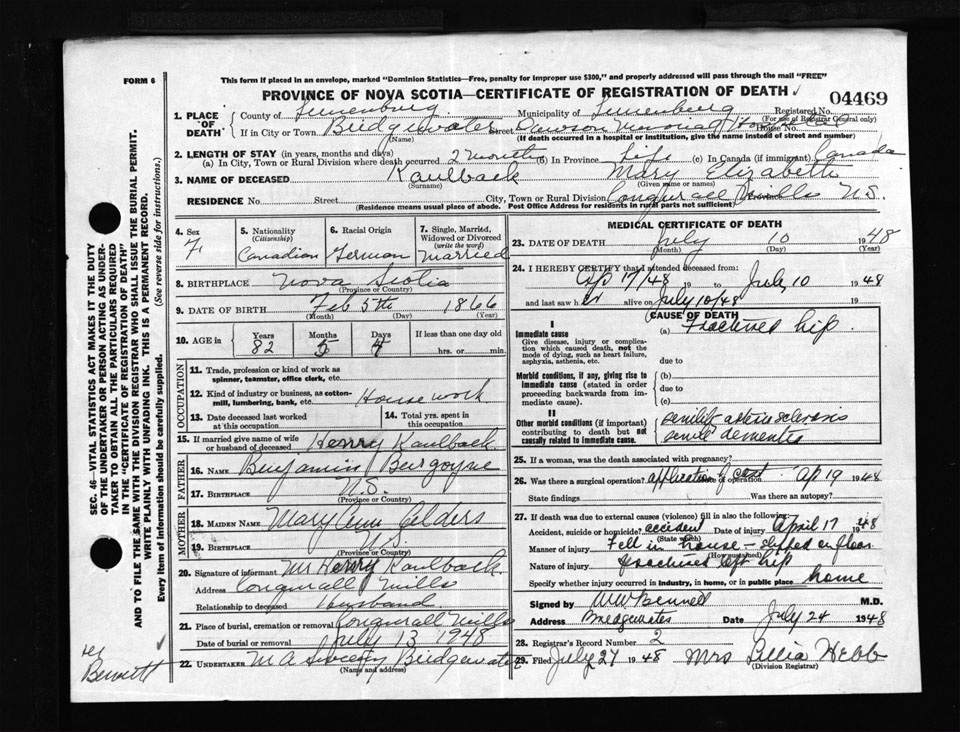 FORM 6
This form if placed in an envelope, marked "Dominion Statistics—Free, penalty for improper use $300," and properly addressed will pass through the mail "FREE"
PROVINCE OF NOVA SCOTIA—CERTIFICATE OF REGISTRATION OF DEATH
04469
1. PLACE OF DEATH County of Lunenburg Municipality of Lunenburg Registered No.
(For use of Registrar General only)
If in City or Town Bridgewater Street Dawson Memorial Hospital House No.
(Name) (If death occurred in a hospital or institution, give the name instead of street and number)
2. LENGTH OF STAY (in years, months and days)
(a) In City, Town or Rural Division where death occurred 2 months (b) In Province Life (c) In Canada (if immigrant) Canada
3. NAME OF DECEASED Kaulback Mary Elizabeth
(Surname) (Given name or names)
RESIDENCE No. Street City, Town or Rural Division Conquerall Mills N.S.
(Residence means usual place of abode. Post Office Address for residents in rural parts not sufficient)
4. Sex F
5. Nationality (Citizenship) Canadian
6. Racial Origin German
7. Single, Married, Widowed or Divorced (write the word) Married
8. BIRTHPLACE Nova Scotia
(Province or Country)
9. DATE OF BIRTH Feb 5th 1866
(Month) (Day) (Year)
10. AGE in Years 82 Months 5 Days 4 If less than one day old
hrs. or min.
OCCUPATION
11. Trade, profession or kind of work as spinner, teamster, office clerk, etc.
12. Kind of industry or business, as cotton-mill, lumbering, bank, etc. House work
13. Date deceased last worked at this occupation
14. Total yrs. spent in this occupation
15. If married give name of wife or husband of deceased Henry Kaulback
FATHER
16. NAME Benjamin Burgoyne
17. BIRTHPLACE N.S.
(Province or Country)
MOTHER
18. MAIDEN NAME Mary Ann
19. BIRTHPLACE N.S.
(Province or Country)
20. Signature of informant Mr Henry Kaulback
Address Conquerall Mills
Relationship to deceased Husband
21. Place of burial, cremation or removal Conquerall Mills
Date of burial or removal July 13 1948
22. UNDERTAKER M A Bridgewater
(Name and address)
MEDICAL CERTIFICATE OF DEATH
23. DATE OF DEATH July 10 1948
(Month) (Day)
24. I HEREBY CERTIFY that I attended deceased from:
Ap 17/48 19 to July 10 1948
and last saw her alive on July 10/48 19
CAUSE OF DEATH
I
Immediate cause (a) Fractured hip
Give disease, injury or complication which caused death, not the mode of dying, such as heart failure, asphyxia, asthenia, etc.
due to
Morbid conditions, if any, giving rise to immediate cause (stated in order proceeding backwards from immediate cause).
(b)
due to
(c)
II
Other morbid conditions (if important) contributing to death but not causally related to immediate cause.
senility arteriosclerosis
senile dementia
25. If a woman, was the death associated with pregnancy?
26. Was there a surgical operation? application of cast Date of operation Ap 19 1948
State findings Was there an autopsy?
27. If death was due to external causes (violence) fill in also the following:
Accident, suicide or homicide? accident Date of injury April 17 1948
(State which)
Manner of injury Fell in house – slipped on floor
(How sustained)
Nature of injury fractured left hip
Specify whether injury occurred in industry, in home, or in public place home
Signed by M.D.
Address Bridgewater Date July 24 1948
28. Registrar's Record Number 2
29. Filed July 27 1948 Mrs Lillia Webb
(Division Registrar)
SEC. 46—VITAL STATISTICS ACT MAKES IT THE DUTY OF THE UNDERTAKER OR PERSON ACTING AS UNDERTAKER TO OBTAIN ALL THE PARTICULARS REQUIRED IN THE "CERTIFICATE OF REGISTRATION OF DEATH" AND TO FILE THE SAME WITH THE DIVISION REGISTRAR WHO SHALL ISSUE THE BURIAL PERMIT.
WRITE PLAINLY WITH UNFADING INK. THIS IS A PERMANENT RECORD.
Every item of information should be carefully supplied. (See reverse side for instructions.)
Bennett